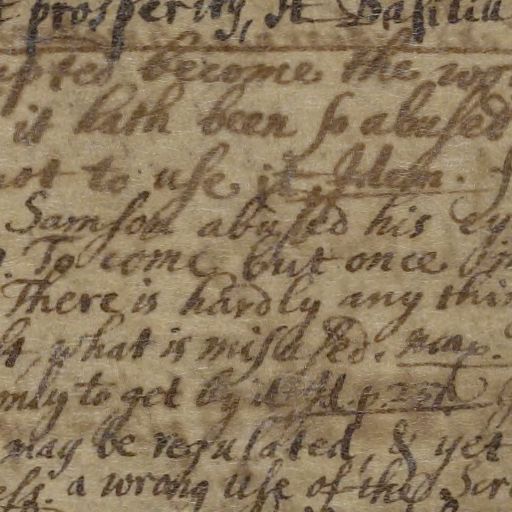 prosperity, St Basiliu
become the wor
it hath been so abused
not to use it. Idem.
Samson abused his ey
To come but once
There is hardly any thin
what is misused. map.
to get by it. Id. p. 231.
may be regulated, & yet
a wrong use of the Scr